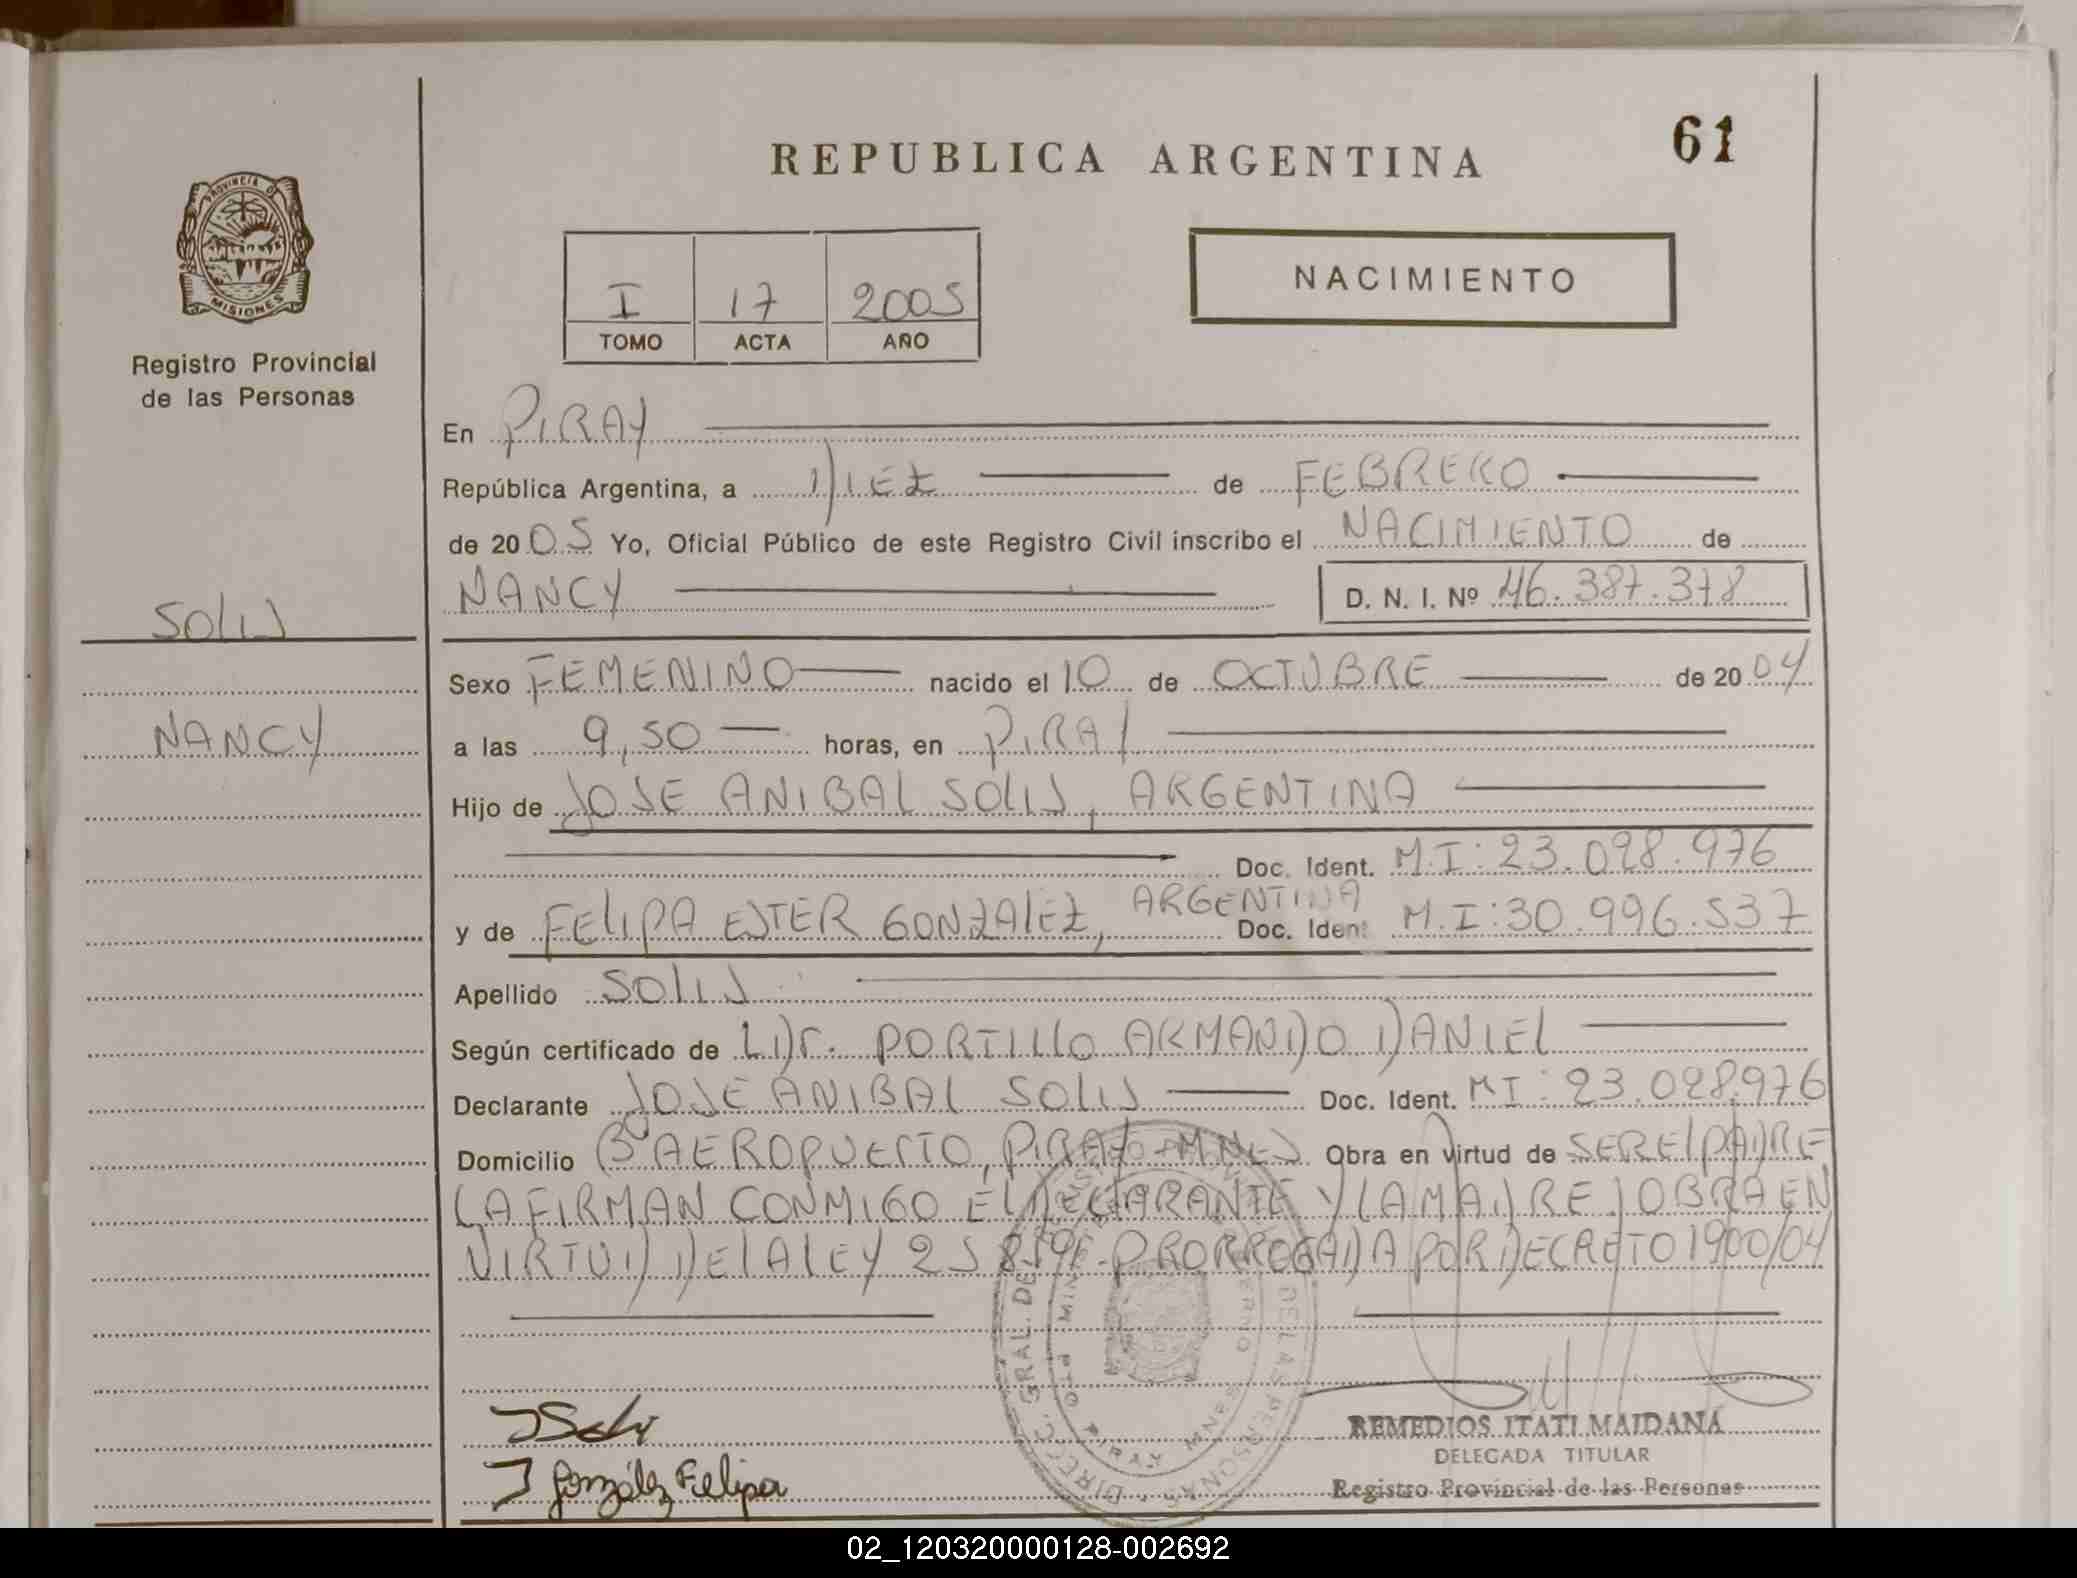 61
REPUBLICA ARGENTINA
PROVINCIA DE
MISIONES
Registro Provincial
de las Personas
NACIMIENTO
I 17 2005
TOMO ACTA AÑO
En PIRAY
República Argentina, a DIEZ de FEBRERO
de 2005 Yo, Oficial Público de este Registro Civil inscribo el NACIMIENTO de
NANCY D. N. I. Nº 46.387.378
SOLIS
NANCY
Sexo FEMENINO nacido el 10 de OCTUBRE de 2004
a las 9,50 horas, en PIRAY
Hijo de JOSE ANIBAL SOLIS, ARGENTINA
Doc. Ident. M.I: 23.098.976
y de FELIPA ESTER GONZALEZ, ARGENTINA Doc. Ident M.I: 30.996.537
Apellido SOLIS
Según certificado de L Dr. PORTILLO ARMANDO DANIEL
Declarante JOSE ANIBAL SOLIS Doc. Ident. MI: 23.098.976
Domicilio Bº AEROPUERTO, PIRAY-MNES Obra en virtud de SER EL PADRE
LA FIRMAN CONMIGO EL DECLARANTE Y LA MADRE. OBRA EN
VIRTUD DE LA LEY 25819. PRORROGADA POR DECRETO 1900/04
J Solis
González Felipa
REMEDIOS ITATI MAIDANA
DELEGADA TITULAR
Registro Provincial de las Personas
02_120320000128-002692